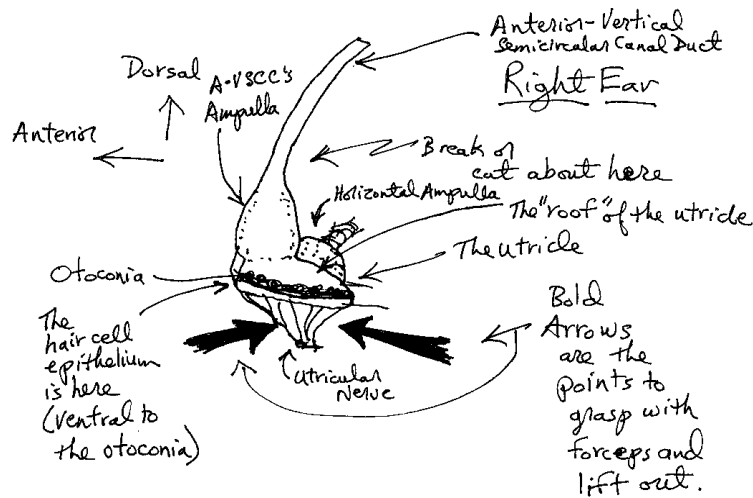 Anterior-Vertical
Semicircular Canal Duct
Right Ear
Dorsal
A-VSCC's
Ampulla
Anterior
Break or
cut about here
Horizontal Ampulla
The "roof" of the utricle
The Utricle
Otoconia
The
hair cell
epithelium
is here
(ventral to
the otoconia)
Utricular
Nerve
Bold
Arrows
are the
points to
grasp with
forceps and
lift out.